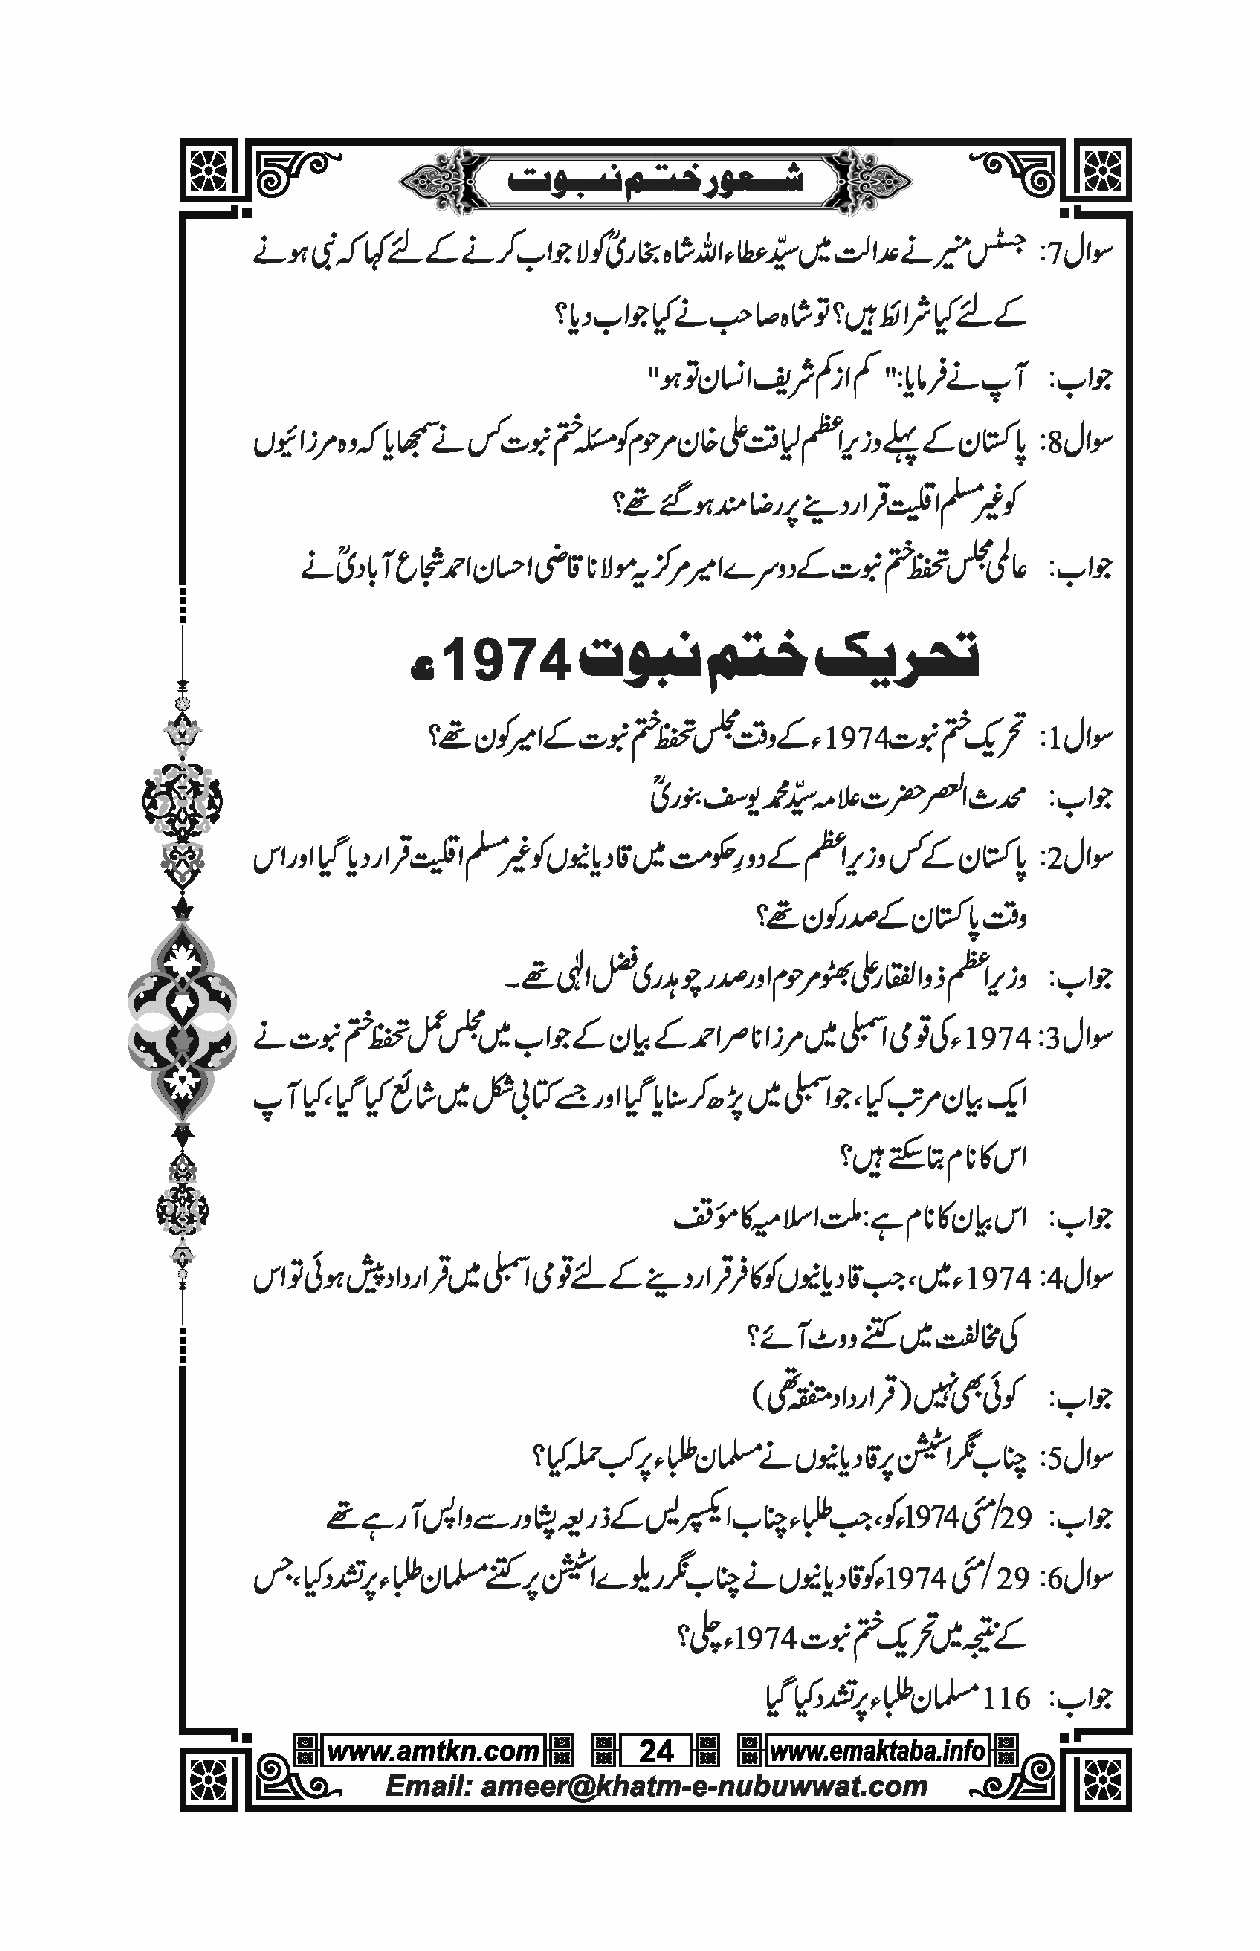 شعور ختم نبوت
سوال7: جسٹس منیر نے عدالت میں سیّد عطاء اللہ شاہ بخاریؒ کو لا جواب کرنے کے لئے کہا کہ نبی ہونے
کے لئے کیا شرائط ہیں؟ تو شاہ صاحب نے کیا جواب دیا؟
جواب: آپ نے فرمایا:" کم از کم شریف انسان تو ہو"
سوال8: پاکستان کے پہلے وزیر اعظم لیاقت علی خان مرحوم کو مسئلہ ختم نبوت کس نے سمجھایا کہ وہ مرزائیوں
کو غیر مسلم اقلیت قرار دینے پر رضا مند ہو گئے تھے؟
جواب: عالمی مجلس تحفظ ختم نبوت کے دوسرے امیر مرکزیہ مولانا قاضی احسان احمد شجاع آبادیؒ نے
تحریک ختم نبوت 1974ء
سوال1: تحریک ختم نبوت 1974ء کے وقت مجلس تحفظ ختم نبوت کے امیر کون تھے؟
جواب: محدث العصر حضرت علامہ سیّد محمد یوسف بنوریؒ
سوال2: پاکستان کے کس وزیر اعظم کے دورِ حکومت میں قادیانیوں کو غیر مسلم اقلیت قرار دیا گیا اور اس
وقت پاکستان کے صدر کون تھے؟
جواب: وزیر اعظم ذوالفقار علی بھٹو مرحوم اور صدر چوہدری فضل الٰہی تھے۔
سوال3: 1974ء کی قومی اسمبلی میں مرزا ناصر احمد کے بیان کے جواب میں مجلس عمل تحفظ ختم نبوت نے
ایک بیان مرتب کیا، جو اسمبلی میں پڑھ کر سنایا گیا اور جسے کتابی شکل میں شائع کیا گیا، کیا آپ
اس کا نام بتا سکتے ہیں؟
جواب: اس بیان کا نام ہے: ملت اسلامیہ کا مؤقف
سوال4: 1974ء میں، جب قادیانیوں کو کافر قرار دینے کے لئے قومی اسمبلی میں قرارداد پیش ہوئی تو اس
کی مخالفت میں کتنے ووٹ آئے؟
جواب: کوئی بھی نہیں (قرارداد متفقہ تھی)
سوال5: چناب نگر اسٹیشن پر قادیانیوں نے مسلمان طلباء پر کب حملہ کیا؟
جواب: 29/مئی 1974ء کو، جب طلباء چناب ایکسپریس کے ذریعہ پشاور سے واپس آ رہے تھے
سوال6: 29/مئی 1974ء کو قادیانیوں نے چناب نگر ریلوے اسٹیشن پر کتنے مسلمان طلباء پر تشدد کیا، جس
کے نتیجہ میں تحریک ختم نبوت 1974ء چلی؟
جواب: 116 مسلمان طلباء پر تشدد کیا گیا
www.amtkn.com 24 www.emaktaba.info
Email: ameer@khatm-e-nubuwwat.com